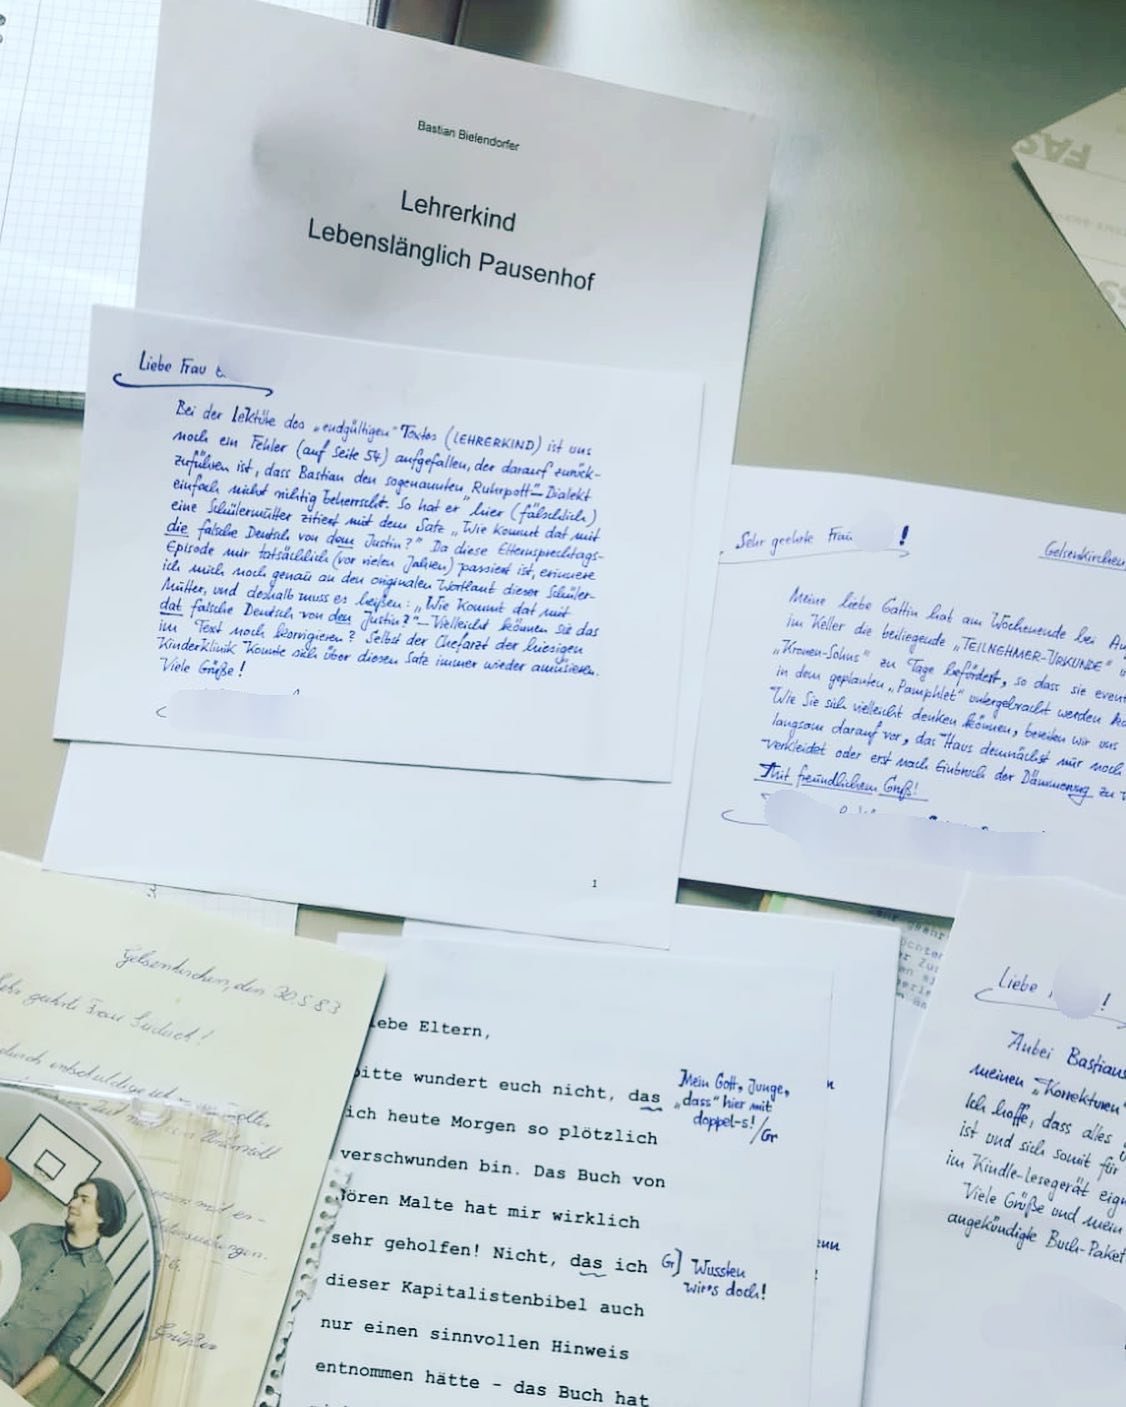 Bastian Bielendorfer
Lehrerkind
Lebenslänglich Pausenhof
FAS
Liebe Frau
Bei der Lektüre des „endgültigen" Textes (LEHRERKIND) ist uns
noch ein Fehler (auf Seite 54) aufgefallen, der darauf zurück-
zuführen ist, dass Bastian den sogenannten „Ruhrpott"-Dialekt
einfach nicht richtig beherrscht. So hat er hier (fälschlich)
eine Schülermutter zitiert mit dem Satz „Wie kommt dat mit
die falsche Deutsch von dem Justin?" Da diese Elternsprechtags-
Episode mir tatsächlich (vor vielen Jahren) passiert ist, erinnere
ich mich noch genau an den originalen Wortlaut dieser Schüler-
Mutter, und deshalb muss es heißen: „Wie kommt dat mit
dat falsche Deutsch von den Justin?" – Vielleicht können sie das
im Text noch korrigieren? Selbst der Chefarzt der hiesigen
Kinderklinik konnte sich über diesen Satz immer wieder amüsieren.
Viele Grüße!
1
Sehr geehrte Frau !
Gelsenkirchen
Meine liebe Gattin hat am Wochenende bei
im Keller die beiliegende „TEILNEHMER-URKUNDE"
„Kronen-Sohns" zu Tage befördert, so dass sie
in dem geplanten „Pamphlet" untergebracht werden
Wie Sie sich vielleicht denken können, bereiten wir uns
langsam darauf vor, das Haus demnächst nur noch
verkleidet oder erst nach Einbruch der Dämmerung zu
Mit freundlichem Gruß!
Gelsenkirchen, den 30.5.83
geehrte Frau
Grüßen
iebe Eltern,
bitte wundert euch nicht, das
ich heute Morgen so plötzlich
verschwunden bin. Das Buch von
Jören Malte hat mir wirklich
sehr geholfen! Nicht, das ich
dieser Kapitalistenbibel auch
nur einen sinnvollen Hinweis
entnommen hätte – das Buch hat
Mein Gott, Junge,
„dass" hier mit
doppel-s! /Gr
Gr] Wussten
wir's doch!
Liebe !
Anbei Bastians
meinen „Korrekturen"
Ich hoffe, dass alles
ist und sich somit für
im Kindle-Lesegerät
Viele Grüße und mein
angekündigte Buch-Paket